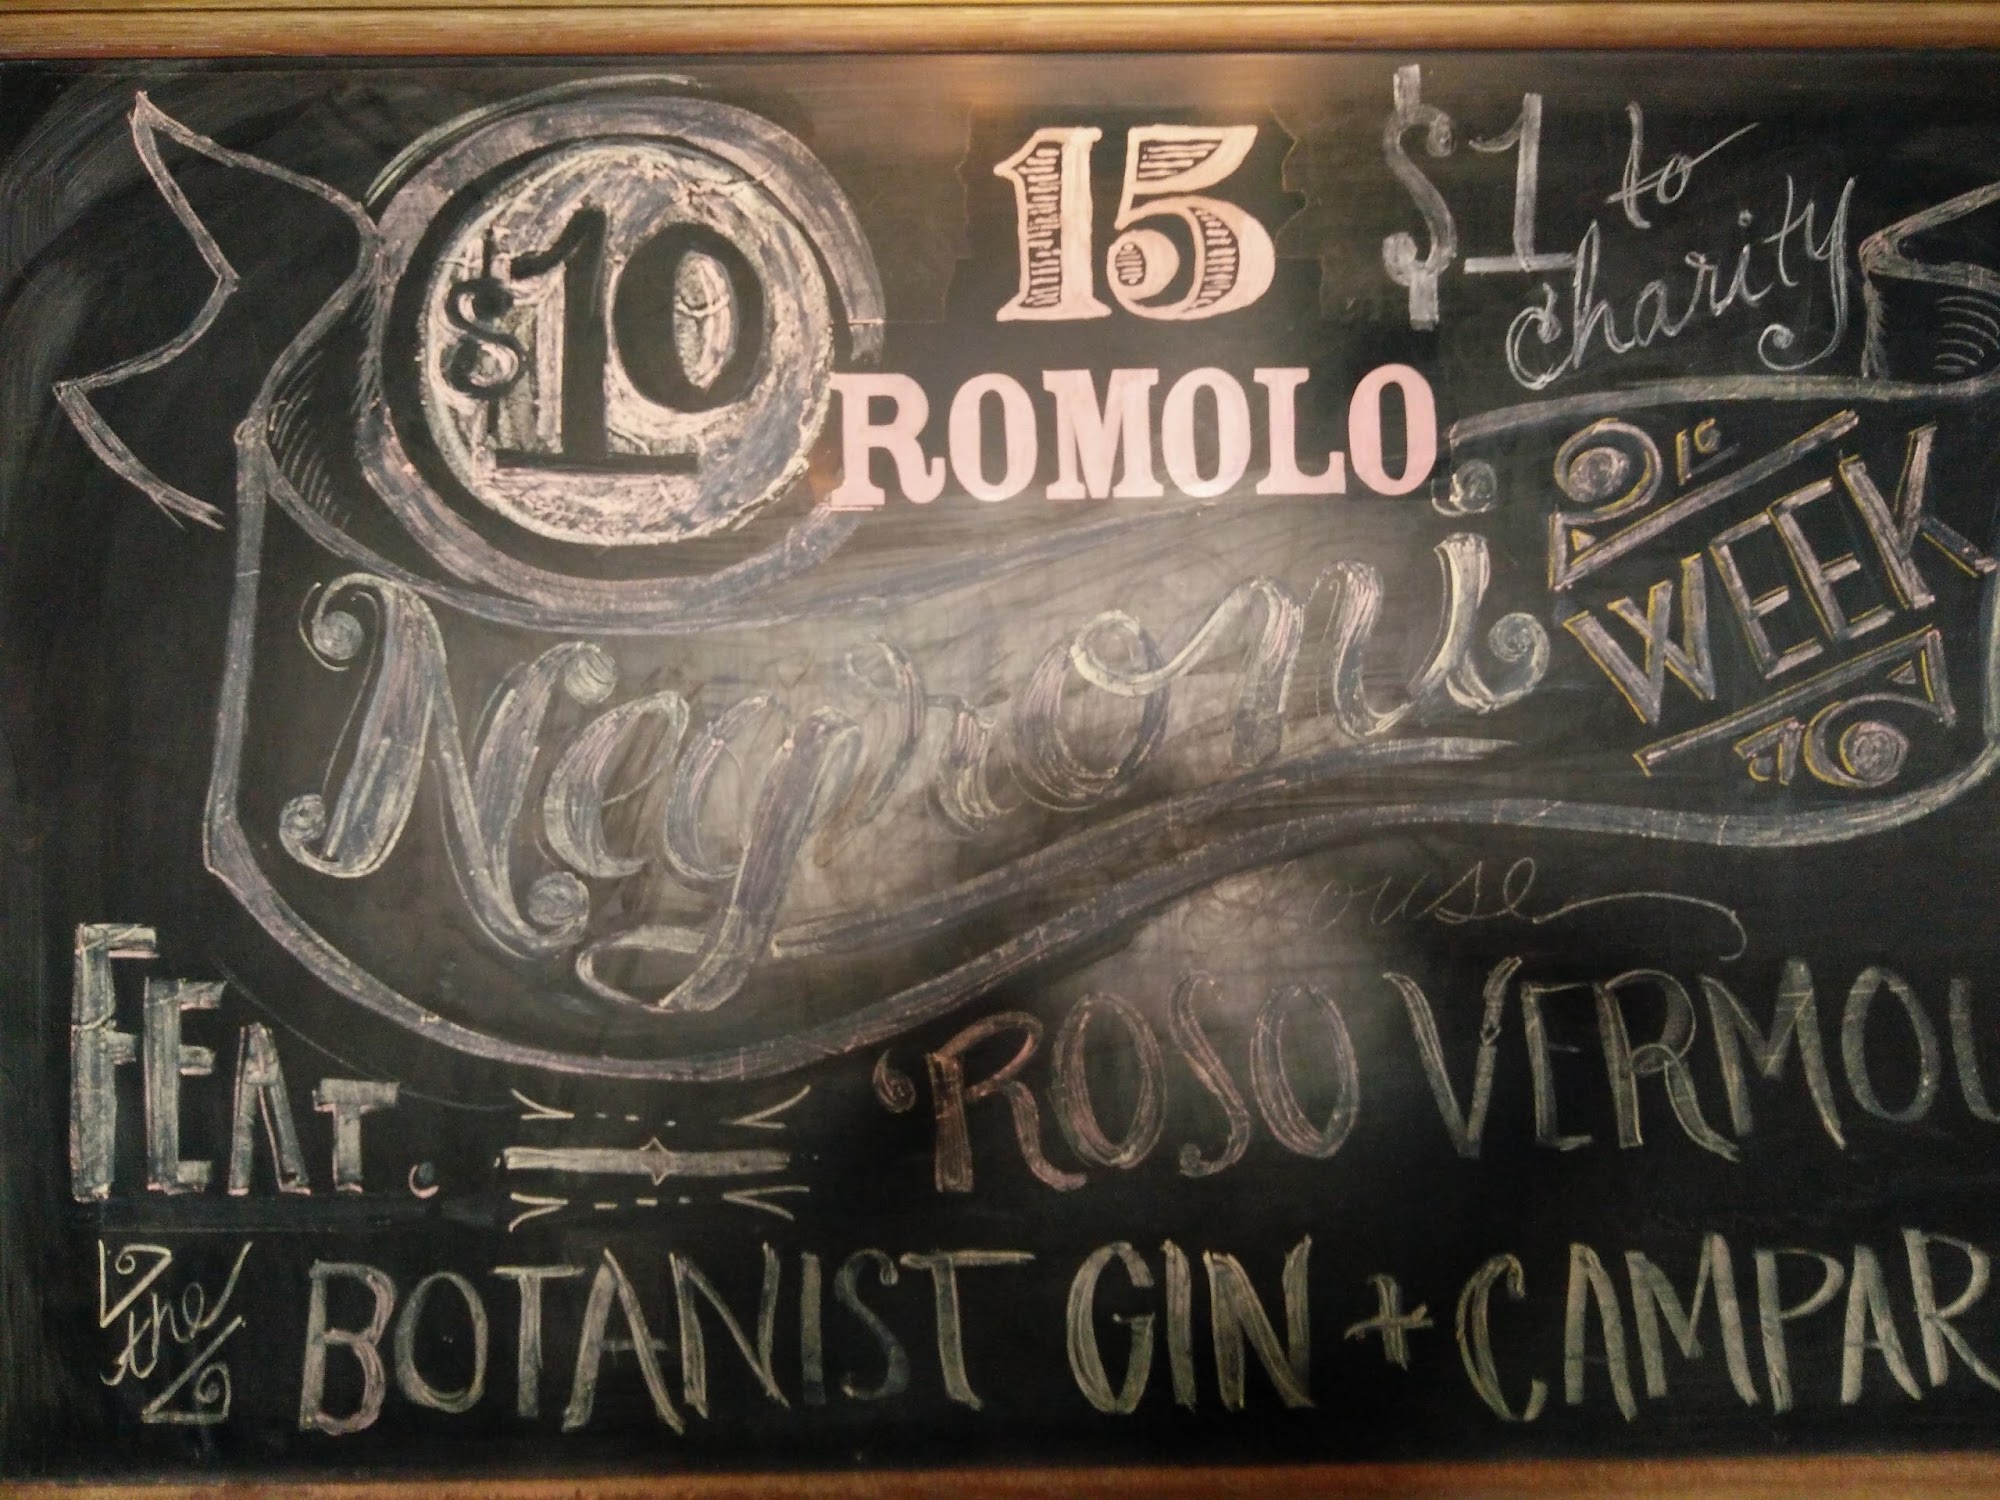 $10
15
ROMOLO
$1 to
charity
Negroni
WEEK
house
FEAT. 'ROSO VERMOU
the BOTANIST GIN + CAMPAR